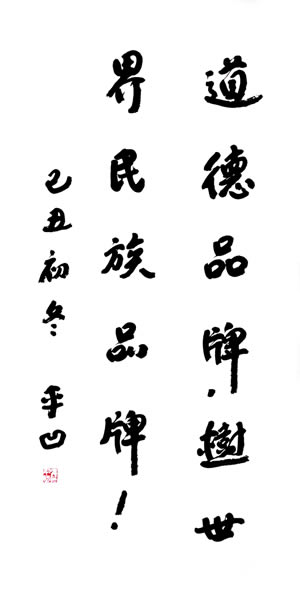 道德品牌,樹世
界民族品牌!
己丑初冬 平凹